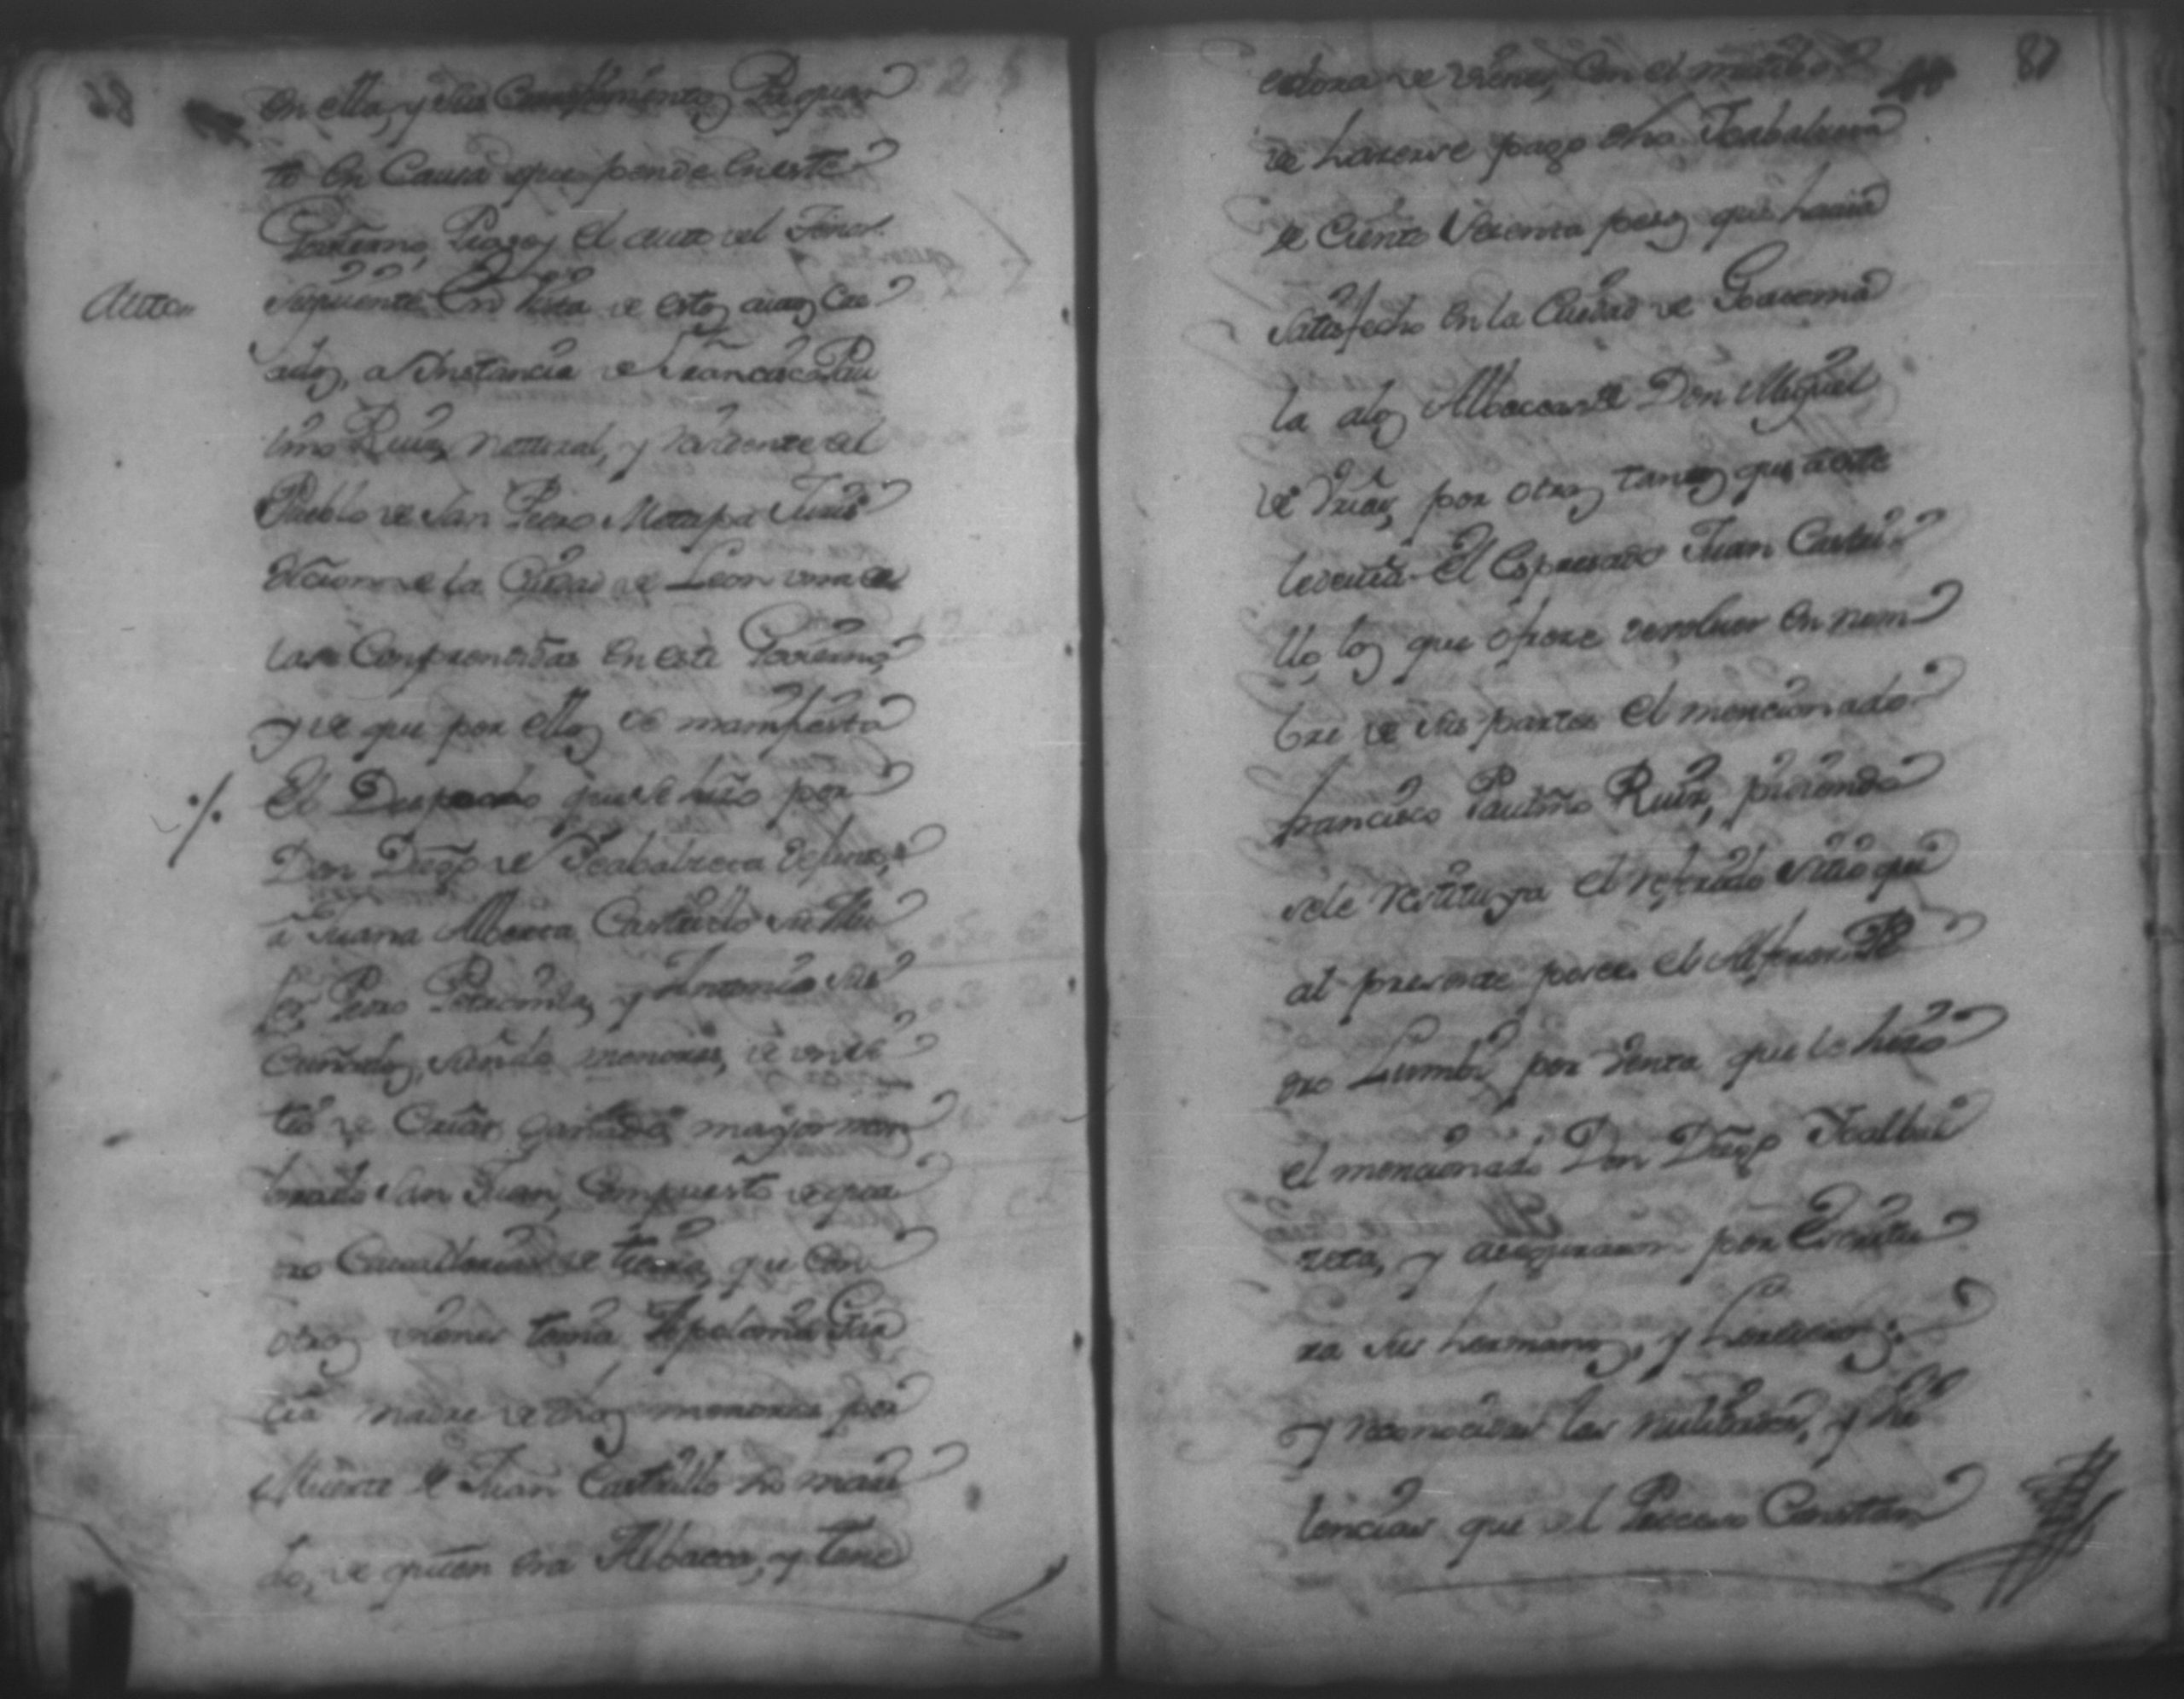 en ella, y sus Cumplimientos Por quan
to en Causa que pende en este
Govierno, Provey el auto del Tenor
Auto
siguiente En Vista de estos autos Cre
ados, a Instancia de Francisco Pau
lino Ruiz, natural, y
Pueblo de San Pedro Metapa Juris
diccion de la Ciudad de Leon una de
las Comprendidas en este Govierno,
y de que por ellos se manifiesta
El Despacho que se hizo por
Don Diego de defunto,
a Juana Albarca Castrillo su Mu
ger Pedro Petronila, y Antonia sus
Cuñados, siendo menores, de un si
tio de Criar ganado mayor nom
brado San Juan, Compuesto de qua
tro Cavallerias de tierra, que con
otros vienes tenia Apolonia Gar
cia madre de dhos menores por
Muerte de Juan Castrillo su mari
do, de quien era Albacea, y tene
87
edora de vienes, con el motibo
de hazerse pago dho
de Ciento sesenta pesos que havia
satisfecho en la Ciudad de
la a los Albaceas de Don Miguel
de por otros tantos que a este
le devia El Espresado Juan Castri
llo, los que ofreze devolver en nom
bre de sus partes El mencionado
Francisco Paulino Ruiz, pidiendo
se le restituya el referido sitio que
al presente posee el Alferez Pe
dro por venta que le hizo
el mencionado Don Diego
y aseguraron por Escritu
ra sus hermanos, y herederos;
y reconocidas las nulidades, y
lencias que el Proceso Constan